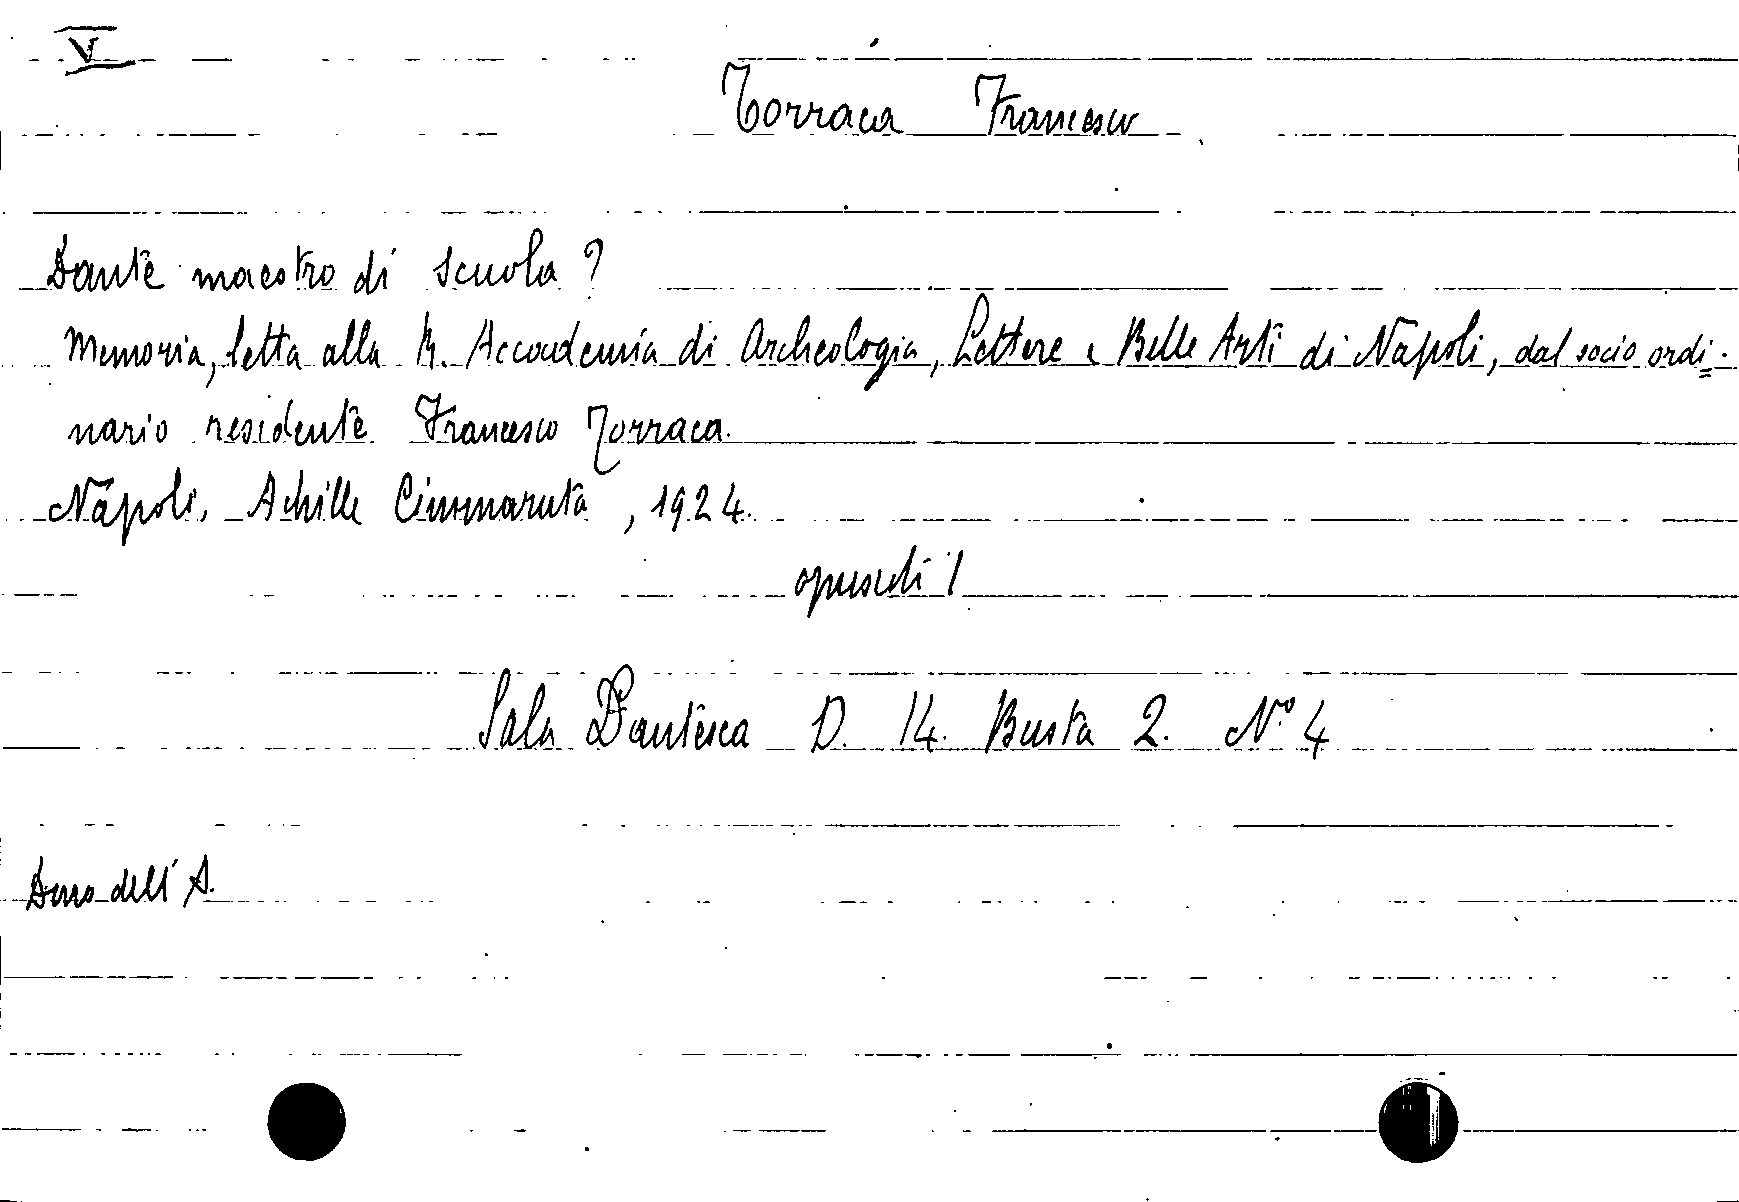 V
Torraca Francesco
Dante maestro di scuola?
Memoria, letta alla R. Accademia di Archeologia, Lettere e Belle Arti di Napoli, dal socio ordi=
nario residente Francesco Torraca.
Napoli, Achille Cimmaruta, 1924.
opuscoli 1
Sala Dantesca D. 14. Busta 2. N° 4
Dono dell'A.